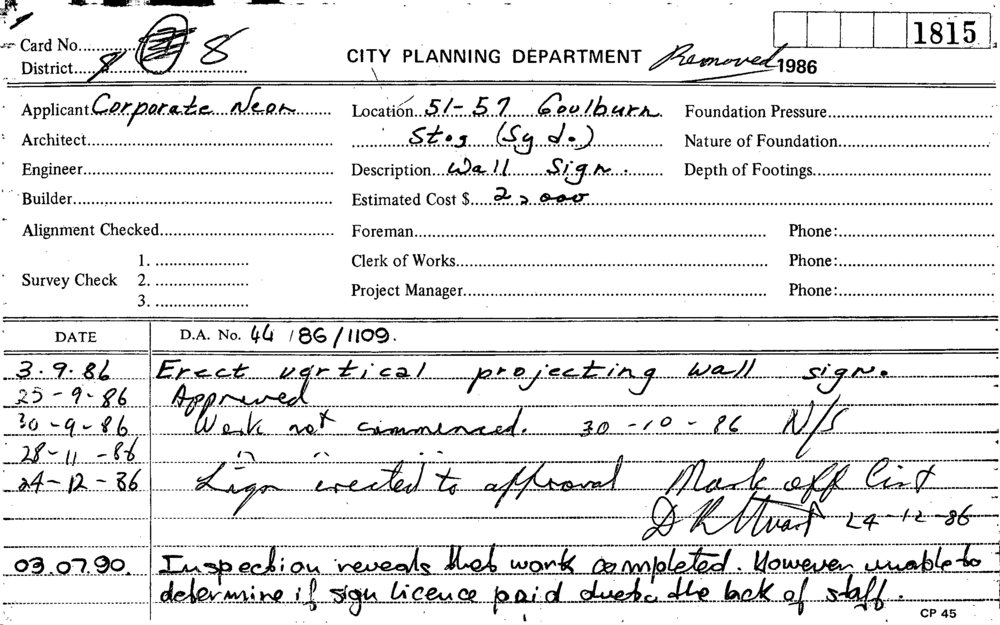 1815
Card No. 8
District 8
CITY PLANNING DEPARTMENT Removed 1986
Applicant Corporate Neon Location 51-57 Goulburn Foundation Pressure
Architect St (Syd.) Nature of Foundation
Engineer Description Wall Sign. Depth of Footings
Builder Estimated Cost $ 2,000
Alignment Checked Foreman Phone:
1. Clerk of Works Phone:
Survey Check 2.
3. Project Manager Phone:
DATE D.A. No. 44/86/1109.
3.9.86 Erect vertical projecting wall sign.
25-9-86 Approved
30-9-86 Work not commenced. 30-10-86 N/S
28-11-86 " " "
24-12-86 Sign erected to approval Mark off list
24-12-86
03.07.90. Inspection reveals that work completed. However unable to
determine if sign licence paid due to the lack of staff.
CP 45